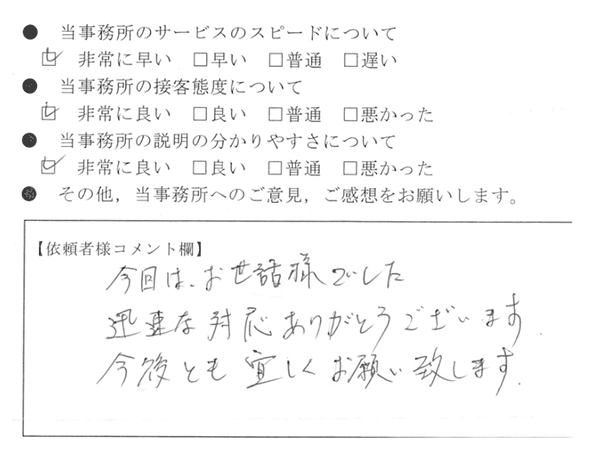 ● 当事務所のサービスのスピードについて
☑ 非常に早い □早い □普通 □遅い
● 当事務所の接客態度について
☑ 非常に良い □良い □普通 □悪かった
● 当事務所の説明の分かりやすさについて
☑ 非常に良い □良い □普通 □悪かった
● その他，当事務所へのご意見，ご感想をお願いします。
【依頼者様コメント欄】
今回は、お世話様でした
迅速な対応ありがとうございます.
今後とも宜しくお願い致します.